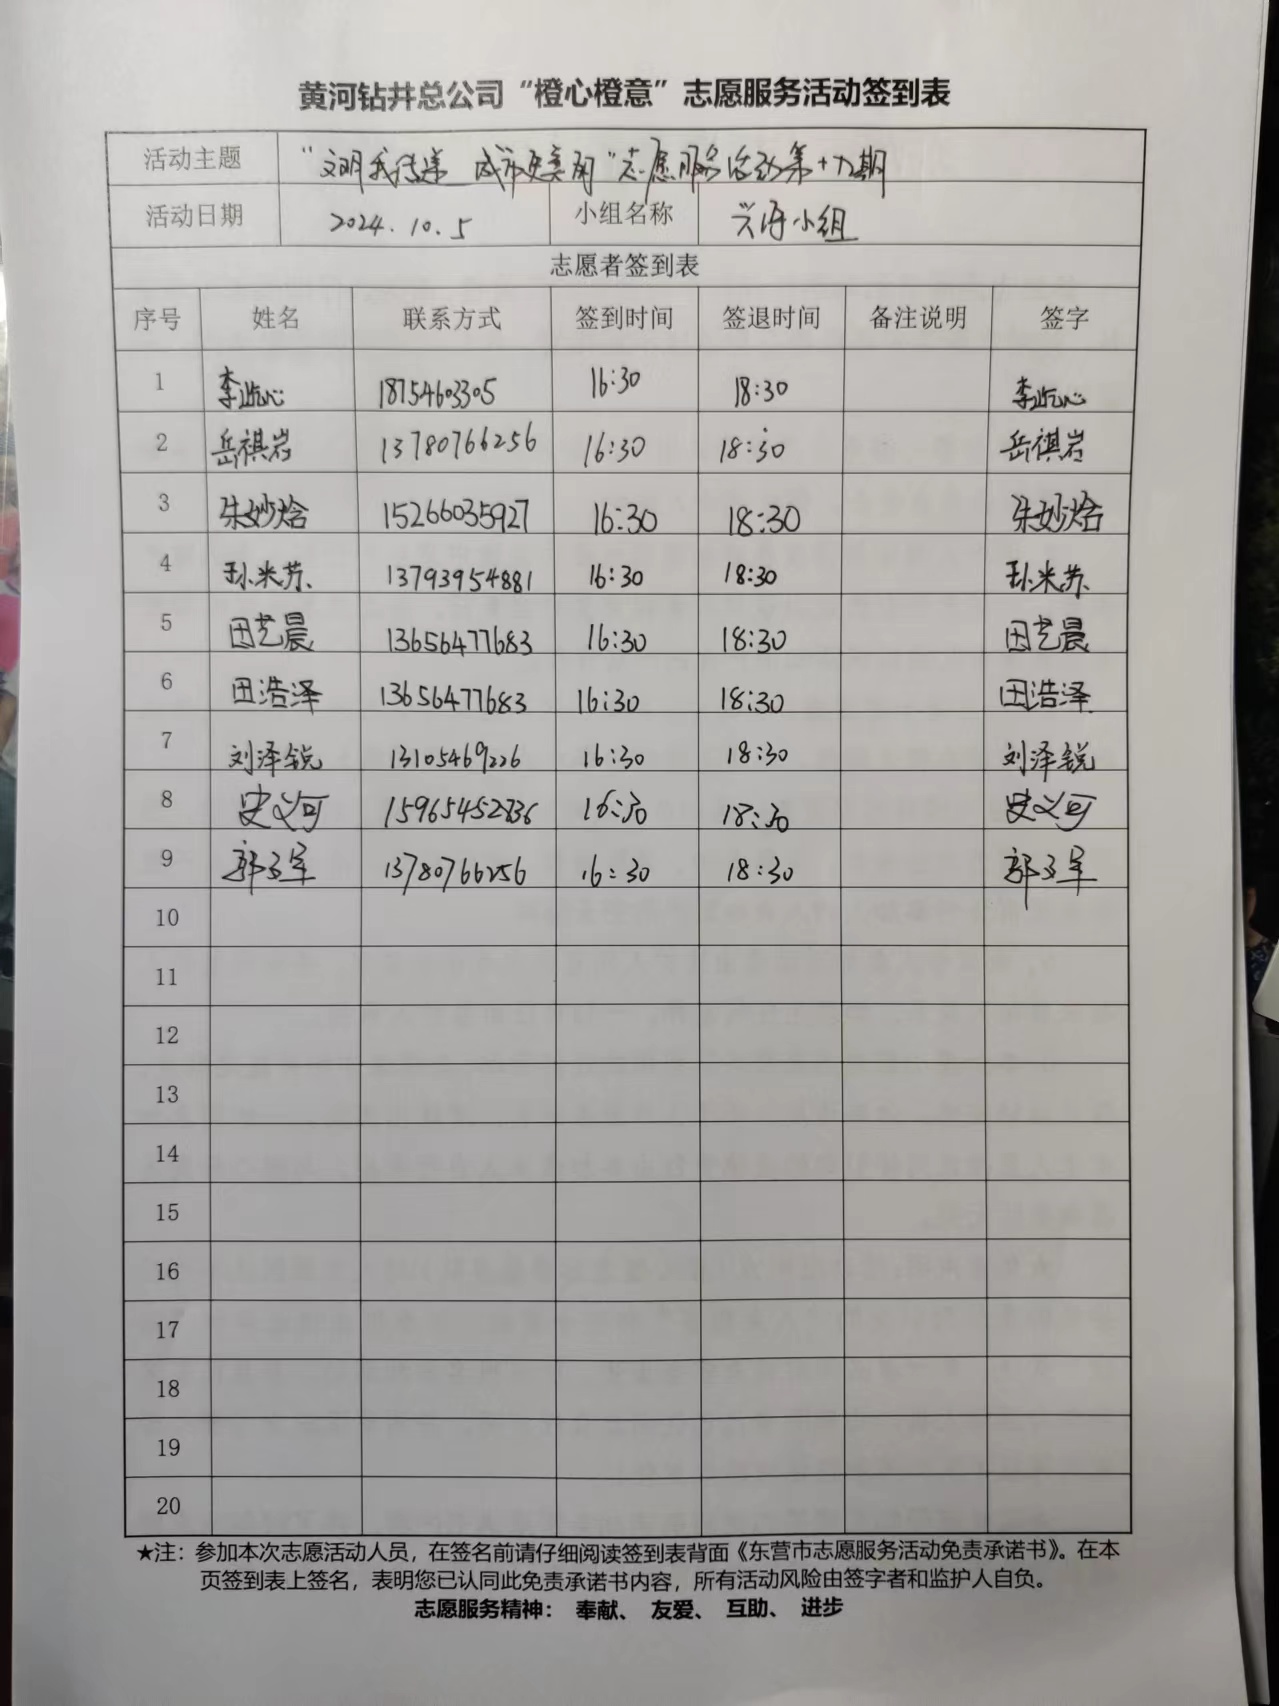 黄河钻井总公司“橙心橙意”志愿服务活动签到表
活动主题 “文明我传递 城市更美丽”志愿服务活动第十九期
活动日期 2024.10.5 小组名称 小组
志愿者签到表
序号 姓名 联系方式 签到时间 签退时间 备注说明 签字
1 李心 18754603305 16:30 18:30 李心
2 岳祺岩 13780766256 16:30 18:30 岳祺岩
3 朱妙焓 15266035927 16:30 18:30 朱妙焓
4 孙米苏 13793954881 16:30 18:30 孙米苏
5 田艺晨 13656477683 16:30 18:30 田艺晨
6 田浩泽 13656477683 16:30 18:30 田浩泽
7 刘泽锐 13105469226 16:30 18:30 刘泽锐
8 史义可 15965452836 16:30 18:30 史义可
9 郭子军 13780766256 16:30 18:30 郭子军
10
11
12
13
14
15
16
17
18
19
20
★注：参加本次志愿活动人员，在签名前请仔细阅读签到表背面《东营市志愿服务活动免责承诺书》。在本
页签到表上签名，表明您已认同此免责承诺书内容，所有活动风险由签字者和监护人自负。
志愿服务精神： 奉献、 友爱、 互助、 进步